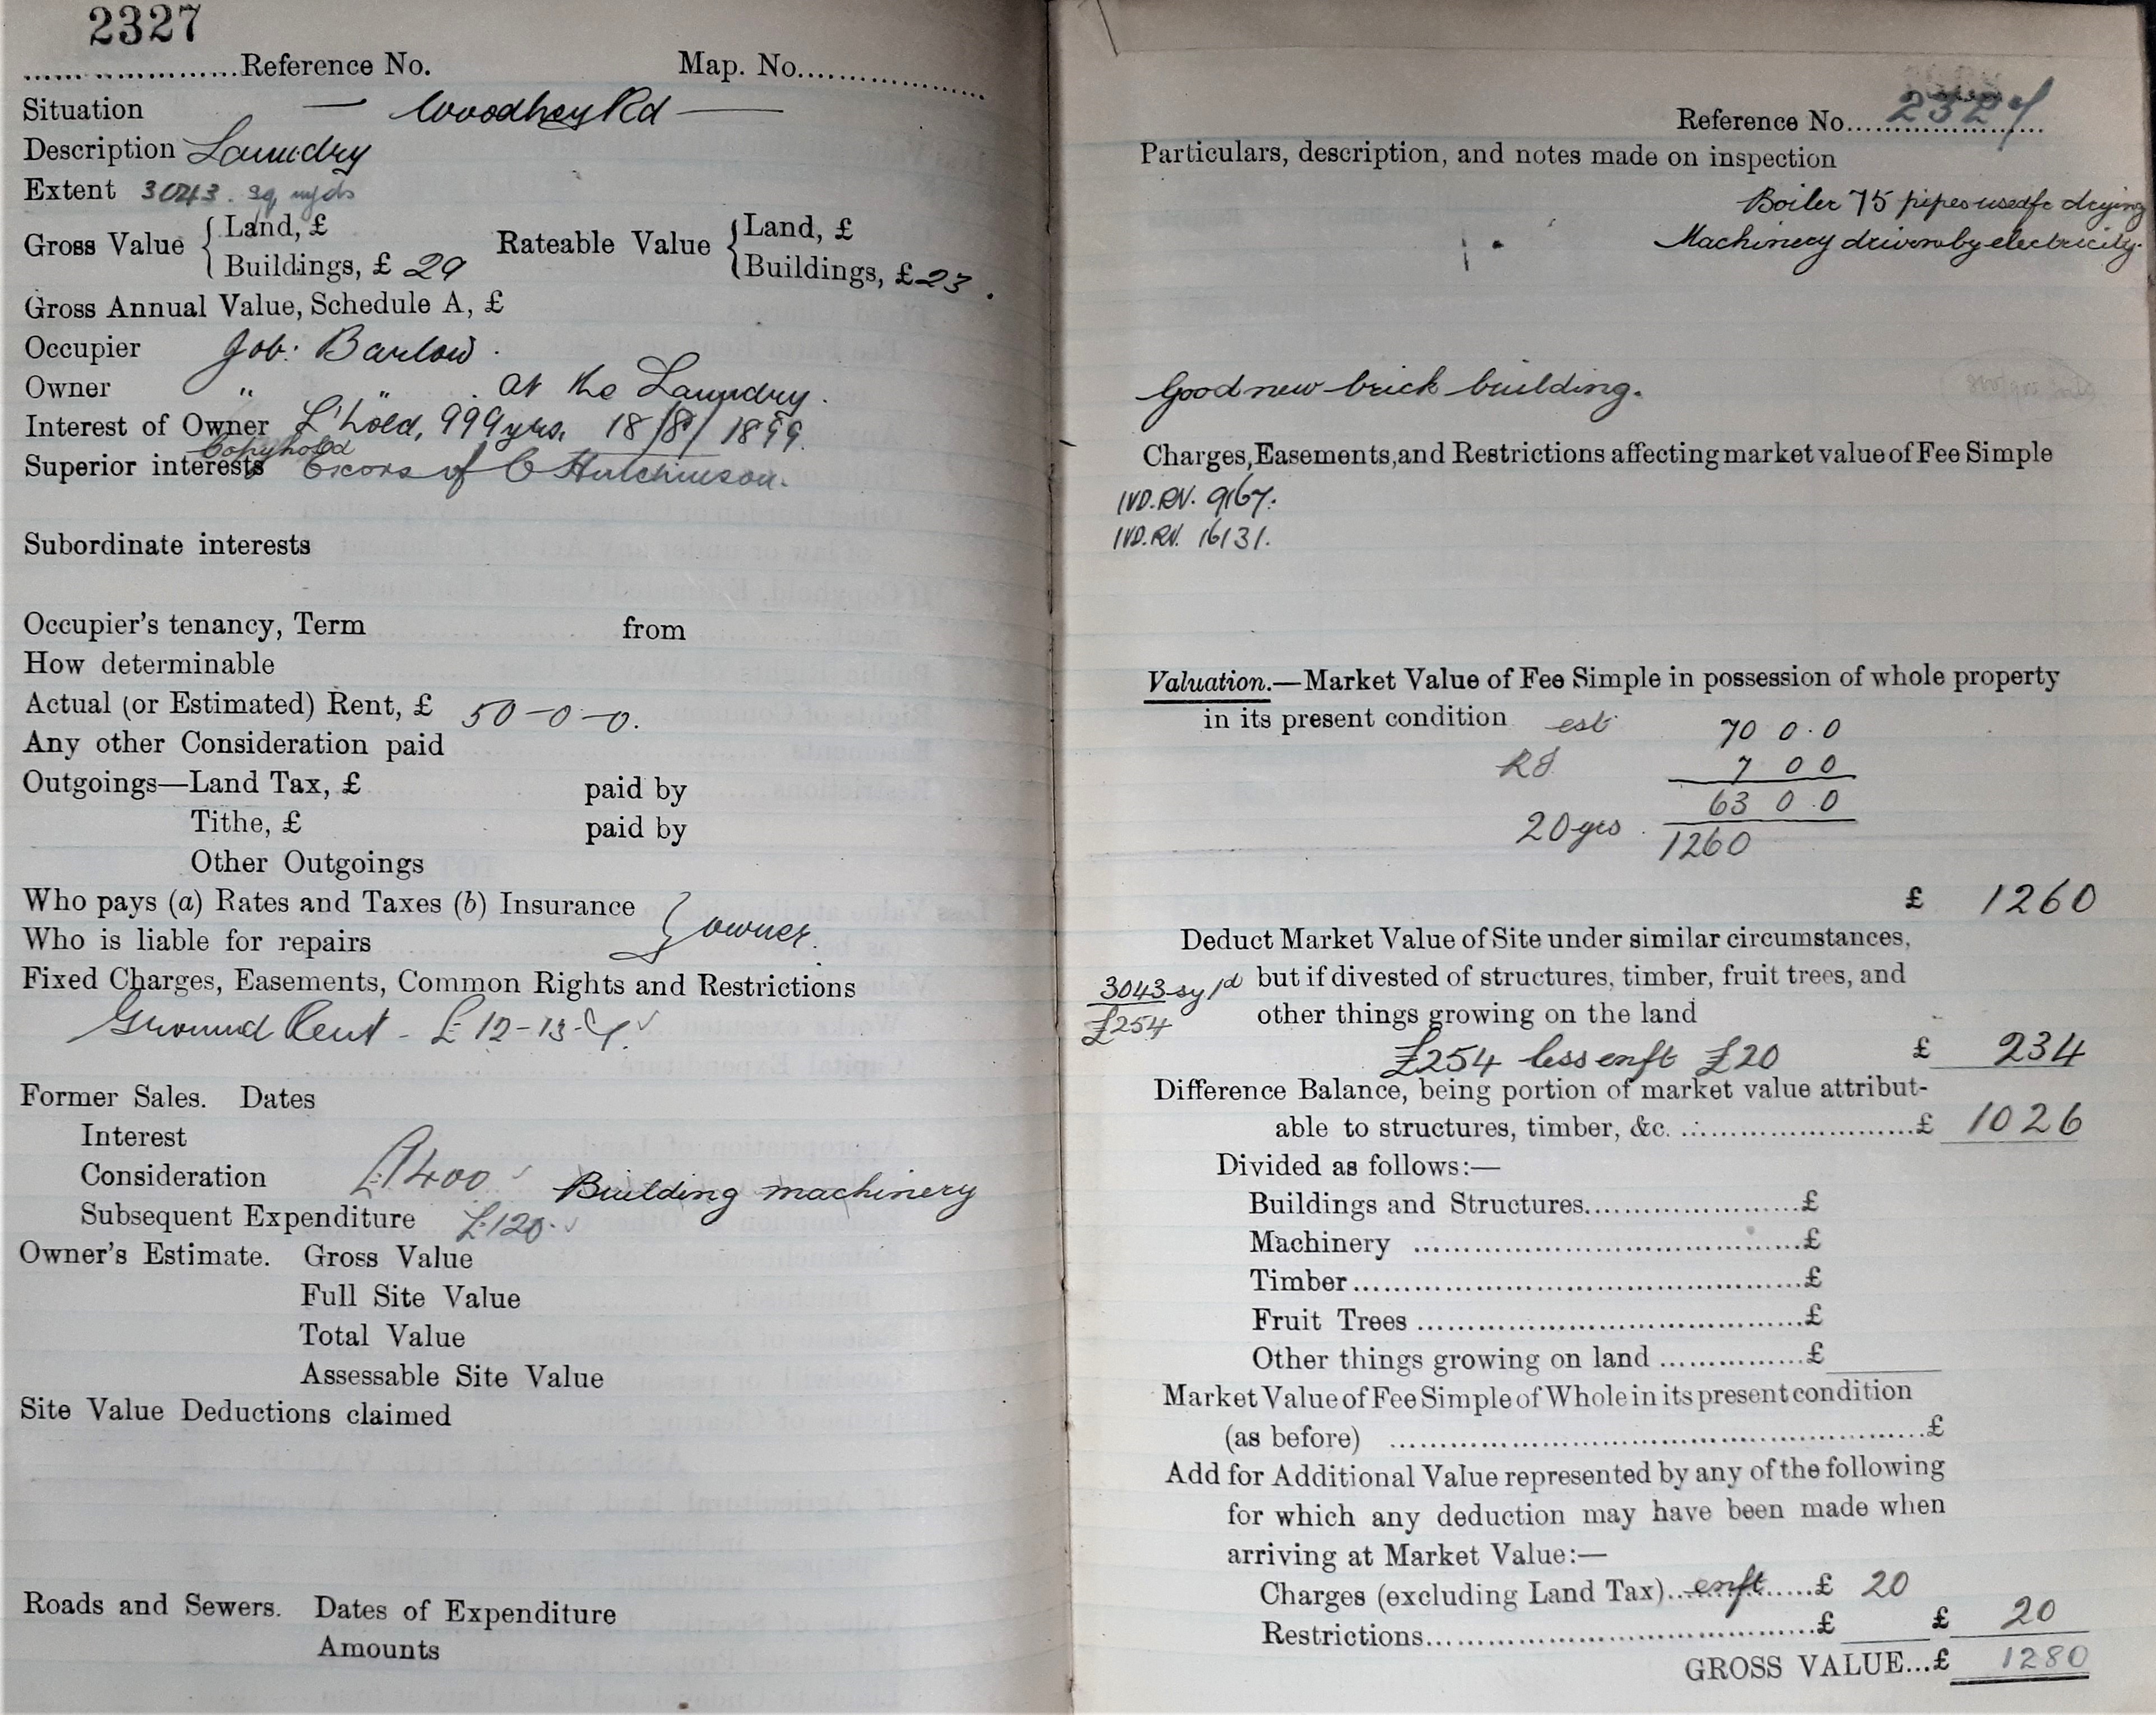 2327
Reference No. Map. No.
Situation — Woodhey Rd —
Description Laundry
Extent 3043. sq yds
Gross Value { Land, £ Rateable Value { Land, £
Buildings, £ 29 Buildings, £ 23.
Gross Annual Value, Schedule A, £
Occupier Job: Barlow.
Owner " " at the Laundry.
Interest of Owner L'hold, 999 yrs. 18/8/1899.
Copyhold
Superior interests Excors of C Hutchinson.
Subordinate interests
Occupier's tenancy, Term from
How determinable
Actual (or Estimated) Rent, £ 50-0-0.
Any other Consideration paid
Outgoings—Land Tax, £ paid by
Tithe, £ paid by
Other Outgoings
Who pays (a) Rates and Taxes (b) Insurance
Who is liable for repairs } owner.
Fixed Charges, Easements, Common Rights and Restrictions
Ground Rent - £12-13-
Former Sales. Dates
Interest
Consideration £1400 Building machinery
Subsequent Expenditure £120.
Owner's Estimate. Gross Value
Full Site Value
Total Value
Assessable Site Value
Site Value Deductions claimed
Roads and Sewers. Dates of Expenditure
Amounts
Reference No. 2327
Particulars, description, and notes made on inspection
Boiler 75 pipes used fr drying
Machinery driven by electricity.
Good new brick building.
Charges, Easements, and Restrictions affecting market value of Fee Simple
IVD.RV. 9167.
IVD.RV. 16131.
Valuation.—Market Value of Fee Simple in possession of whole property
in its present condition est 70 0.0
7 0 0
63 0.0
20 yrs. 1260
£ 1260
Deduct Market Value of Site under similar circumstances,
3043 sy 1d but if divested of structures, timber, fruit trees, and
£254 other things growing on the land
£254 less enft £20 £ 234
Difference Balance, being portion of market value attribut-
able to structures, timber, &c. £ 1026
Divided as follows:—
Buildings and Structures £
Machinery £
Timber £
Fruit Trees £
Other things growing on land £
Market Value of Fee Simple of Whole in its present condition
(as before) £
Add for Additional Value represented by any of the following
for which any deduction may have been made when
arriving at Market Value:—
Charges (excluding Land Tax) enft £ 20
Restrictions £ £ 20
GROSS VALUE...£ 1280